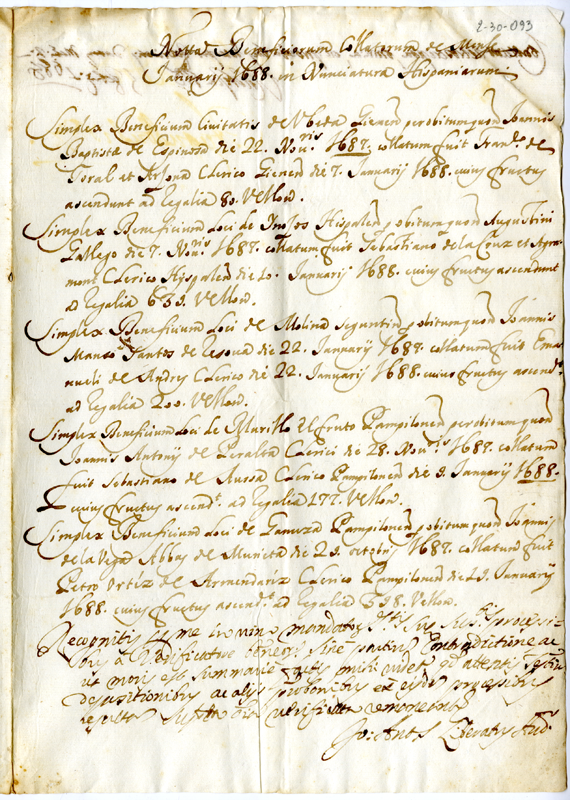 2-30-093
Notta Beneficiorum Collatorum de Mense
Januarij 1688. in Nunciatura Hispaniarum
Simplex Beneficium Civitatis de Vbeda Gienen̄ per obitum quon̄ Joannis
Baptistæ de Espinosa die 22. Nou.ris 1687. collatum fuit Fran.co de
Toral et Arjona Clerico Gienen̄ die 7. Januarij 1688. cuius fructus
ascendunt ad Regalia 80. Vellon.
Simplex Beneficium loci de Hispalen̄ p obitum quon̄ Augustini
Gallego die 7. Nou.ris 1687. collatum fuit Sebastiano de la Cruz et Agra-
mont Clerico Hispalen̄ die 10. Januarij 1688. cuius fructus ascendunt
ad Regalia 639. Vellon.
Simplex Beneficium loci de Molina Seguntin̄ p obitum quon̄ Joannis
Manso Santos de die 22. Januarij 1688. collatum fuit Ema-
nueli de Andres Clerico die 22. Januarij 1688. cuius fructus ascend.t
ad Regalia 200. Vellon.
Simplex Beneficium loci de Murillo el fruto Pampilonen̄ per obitum quon̄
Joannis Antonij de Peralta Clerici die 28. Nou.ris 1687. collatum
fuit Sebastiano de Clerico Pampilonen̄ die 9. Januarij 1688.
cuius fructus ascend.t ad Regalia 177. Vellon.
Simplex Beneficium loci de Ganuza Pampilonen̄ p obitum quon̄ Joannis
de la Vega Abbas de Munieta die 29. octobris 1687. collatum fuit
Petro Ortiz de Armendariz Clerico Pampilonen̄ die 19. Januarij
1688. cuius fructus ascend.t ad Regalia 598. Vellon.
Recognitis per me mandato processi-
bus sine Contradictione ac
ut moris est summarie mihi videt attentis
depositionibus ac alijs probationibus ex eisdem processibus
Jo: Ant.s Aud.r